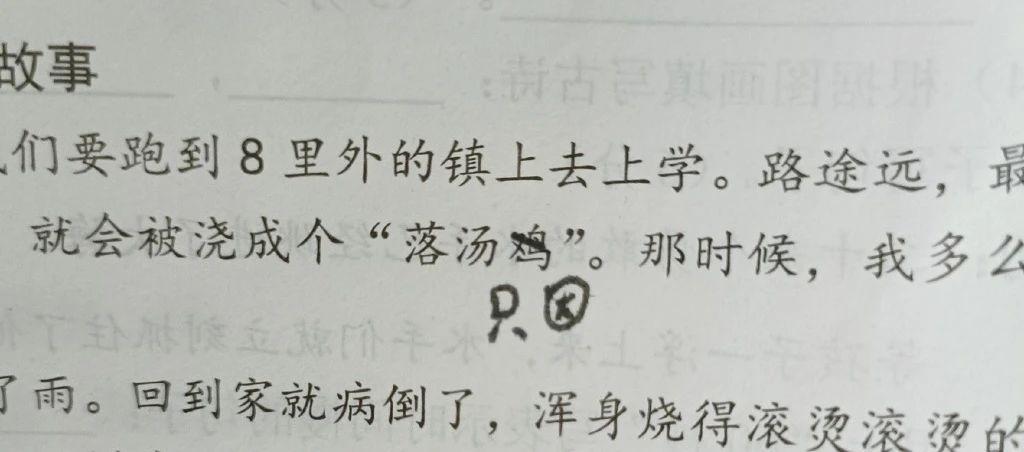 故事
们要跑到8里外的镇上去上学。路途远，最
就会被浇成个“落汤鸡”。那时候，我多么
了雨。回到家就病倒了，浑身烧得滚烫滚烫的